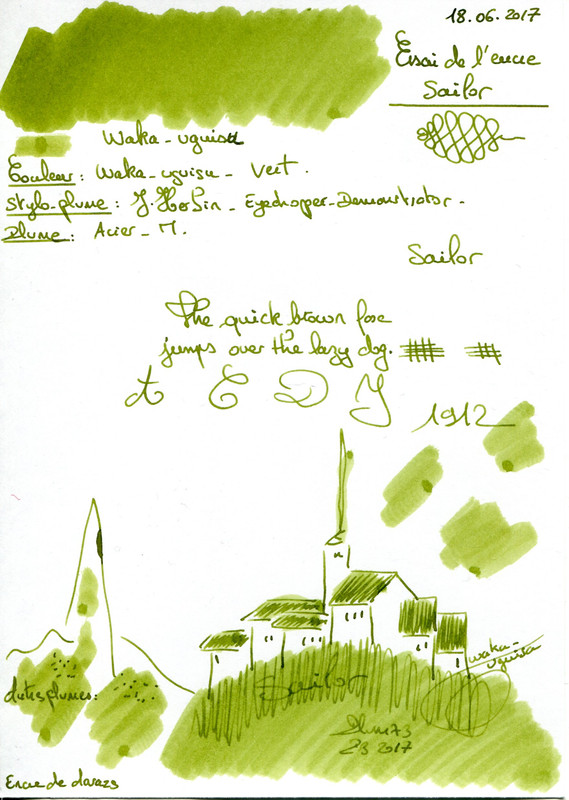 18.06.2017
Essai de l'encre
Sailor
Waka-uguisu
Couleur: Waka-uguisu - Vert.
Stylo-plume: J. Herbin - Eyedropper-Demonstrator -
Plume: Acier - M.
Sailor
The quick brown foxe
jumps over the lazy dog.
A E D J 1912
waka-
uguisu
Sailor
Autres plumes:
2017
Encre de